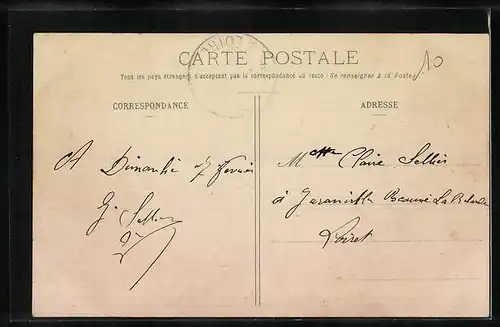 CARTE POSTALE
Tous les pays étrangers n'acceptent pas la correspondance au recto - Se renseigner à la Poste
10
CORRESPONDANCE
ADRESSE
A Dimanche 7 Février
G. Sellier
Melle Claire Sellier
à Juranville Beaune La Rolande
Loiret